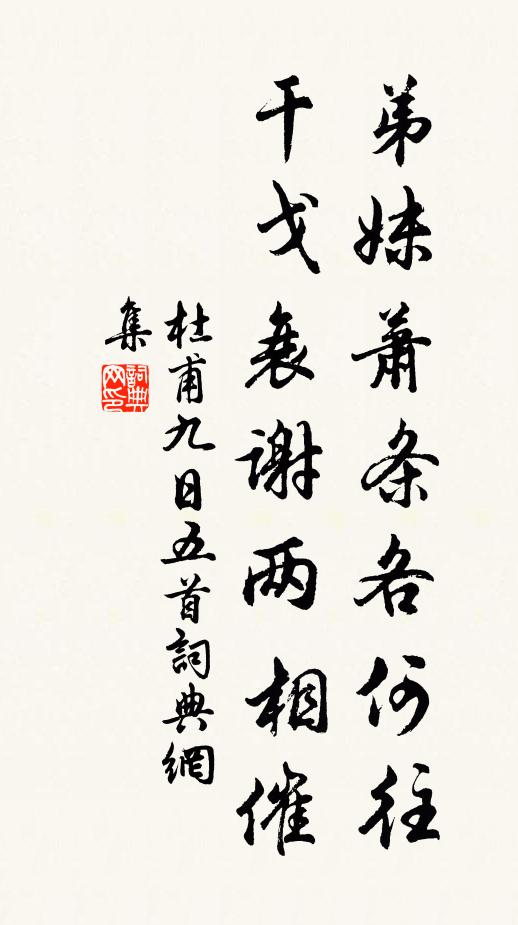 弟妹萧条各何往
干戈衰谢两相催
杜甫九日五首詞典網
集
詞典网印